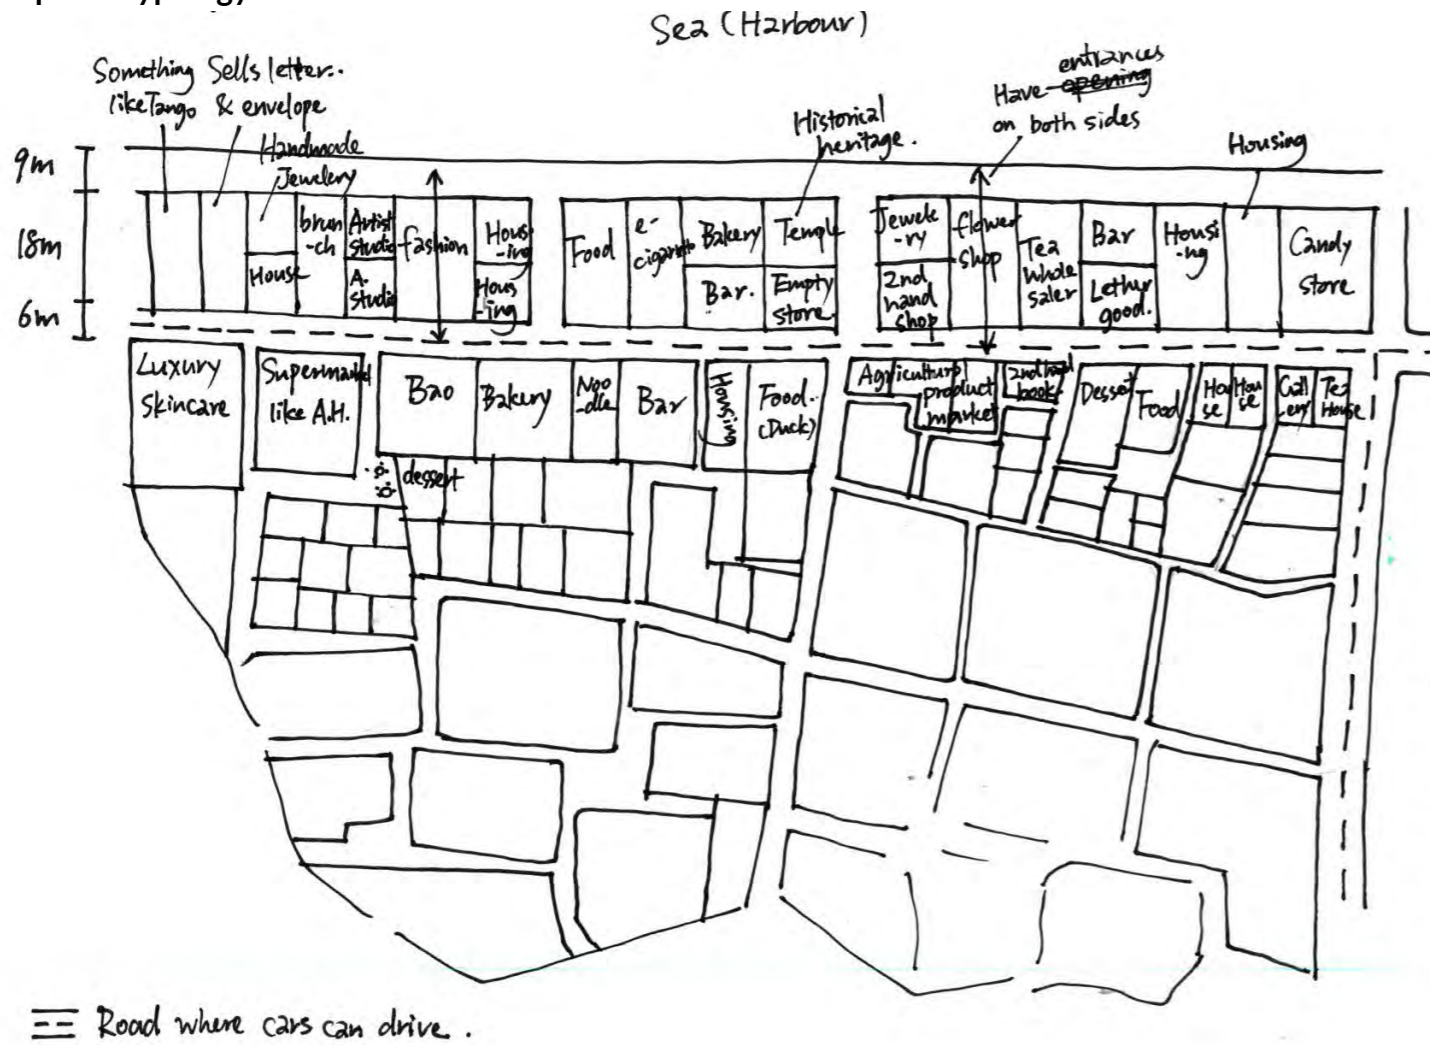 Sea (Harbour)
Something
like Tango
Sells letter..
& envelope
Handmade
Jewelery
Historical
heritage.
entrances
Have opening
on both sides
Housing
9m
18m
6m
House
brun
-ch
Artist
studio
A.
studio
fashion
Hous
-ing
Hous
-ing
Food
e-
cigarete
Bakery
Bar.
Temple
Empty
store.
Jewele
-ry
2nd
hand
shop
flower
shop
Tea
whole
saler
Bar
Lether
good.
Housi
-ng
Candy
store
Luxury
Skincare
Supermarket
like A.H.
Bao
Bakery
Noo
-dle
Bar
Housing
Food..
(Duck)
Agricultural
product
market
2nd hand
book
Dessert
Food
Hou
se
Hou
se
Gall
ery
Tea
House
dessert
Road where cars can drive.